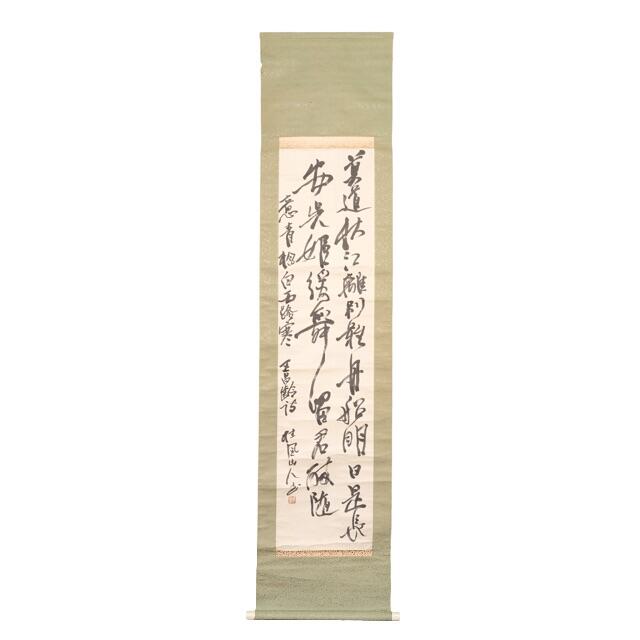 莫道秋江離別難舟船明日是長
安吳姬緩舞留君醉隨
意青楓白露寒 王昌齡詩 風山人書